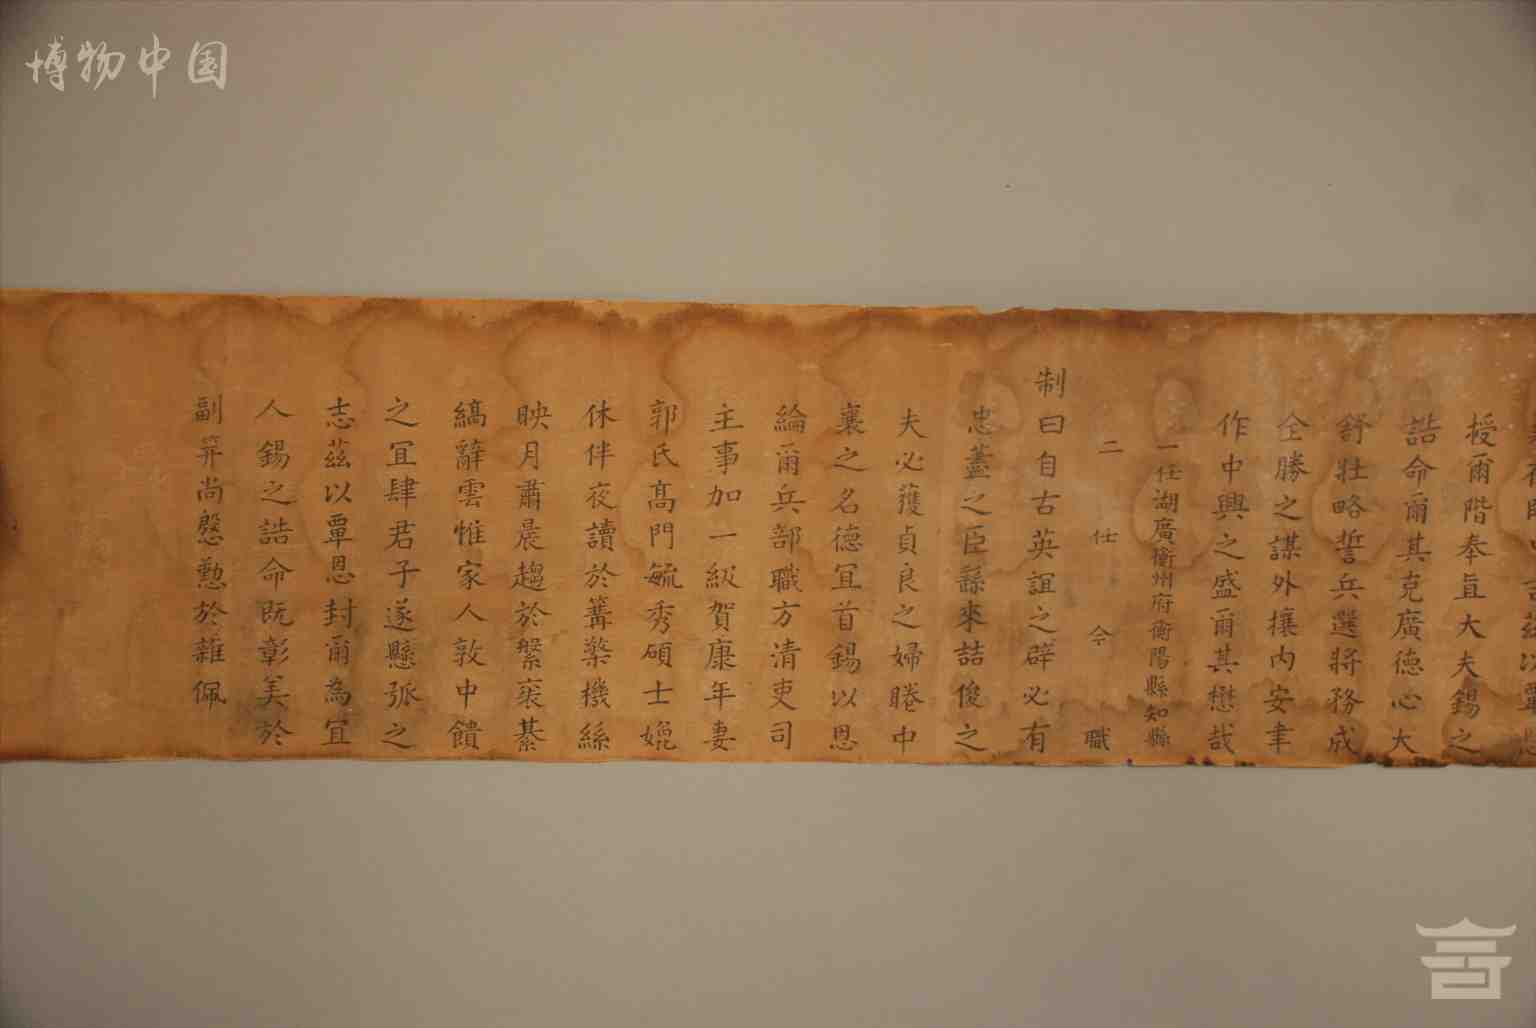 博物中国
授爾階奉直大夫錫之
誥命爾其克廣德心大
舒壯略誓兵選將務成
全勝之謀外攘內安聿
作中興之盛爾其懋哉
一任湖廣衡州府衡陽縣知縣
二仕今職
制曰自古英誼之辟必有
忠藎之臣繇來喆俊之
夫必獲貞良之婦睠中
襄之名德宜首錫以恩
綸爾兵部職方清吏司
主事加一級賀康年妻
郭氏高門毓秀碩士嬔
休伴夜讀於篝檠機絲
映月肅晨趨於鞶裘綦
縞辭雲惟家人敦中饋
之宜肆君子遂懸弧之
志茲以覃恩封爾為宜
人錫之誥命既彰美於
副笄尚慇懃於雜佩